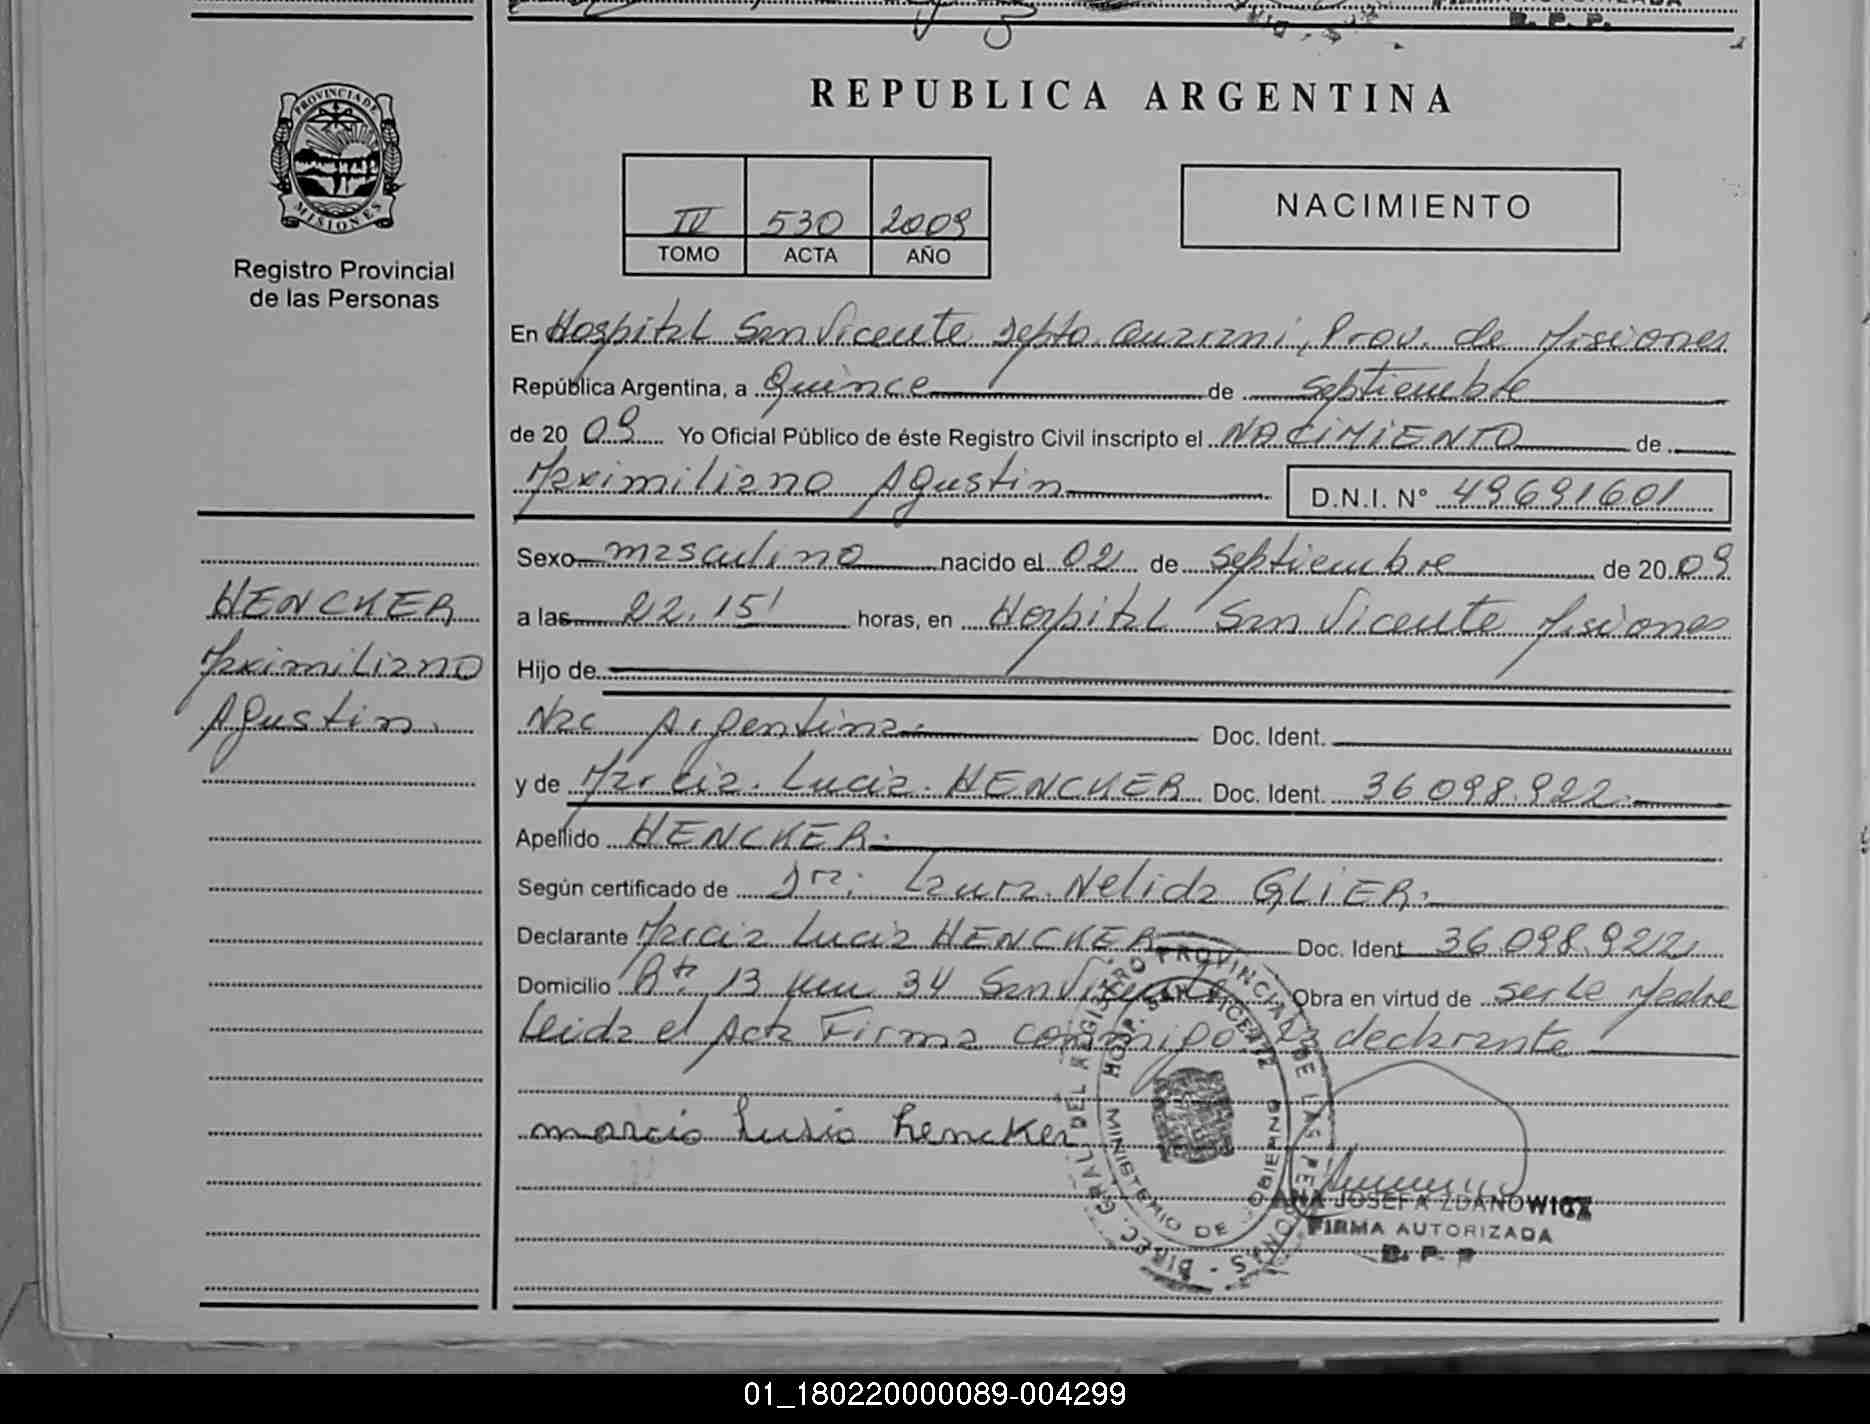 REPUBLICA ARGENTINA
PROVINCIA DE
MISIONES
Registro Provincial
de las Personas
IV 530 2009
TOMO ACTA AÑO
NACIMIENTO
En Hospital San Vicente Depto. Guarani, Prov. de Misiones
República Argentina, a Quince de Septiembre
de 20 09 Yo Oficial Público de éste Registro Civil inscripto el NACIMIENTO de
Maximiliano Agustin D.N.I. N° 49691601
Sexo masculino nacido el 02 de Septiembre de 20 09
a las 22.15' horas, en Hospital San Vicente Misiones
Hijo de
Nac Argentina. Doc. Ident.
y de Marcia. Lucia. HENCKER Doc. Ident. 36.098.922.
Apellido HENCKER.
Según certificado de Dra. Laura Nelida GLIER.
Declarante Marcia Lucia HENCKER Doc. Ident 36.098.922
Domicilio Rta. 13 km 34 San Vicente Obra en virtud de ser la Madre
Leida el Acta Firma conmigo la declarante
HENCKER
Maximiliano
Agustin.
marcia Lusia hencker
DIREC. GRAL. DEL REGISTRO PROVINCIAL DE LAS PERSONAS
HOSP. SAN VICENTE
MINISTERIO DE GOBIERNO
ANA JOSEFA ZDANOWICZ
FIRMA AUTORIZADA
01_180220000089-004299